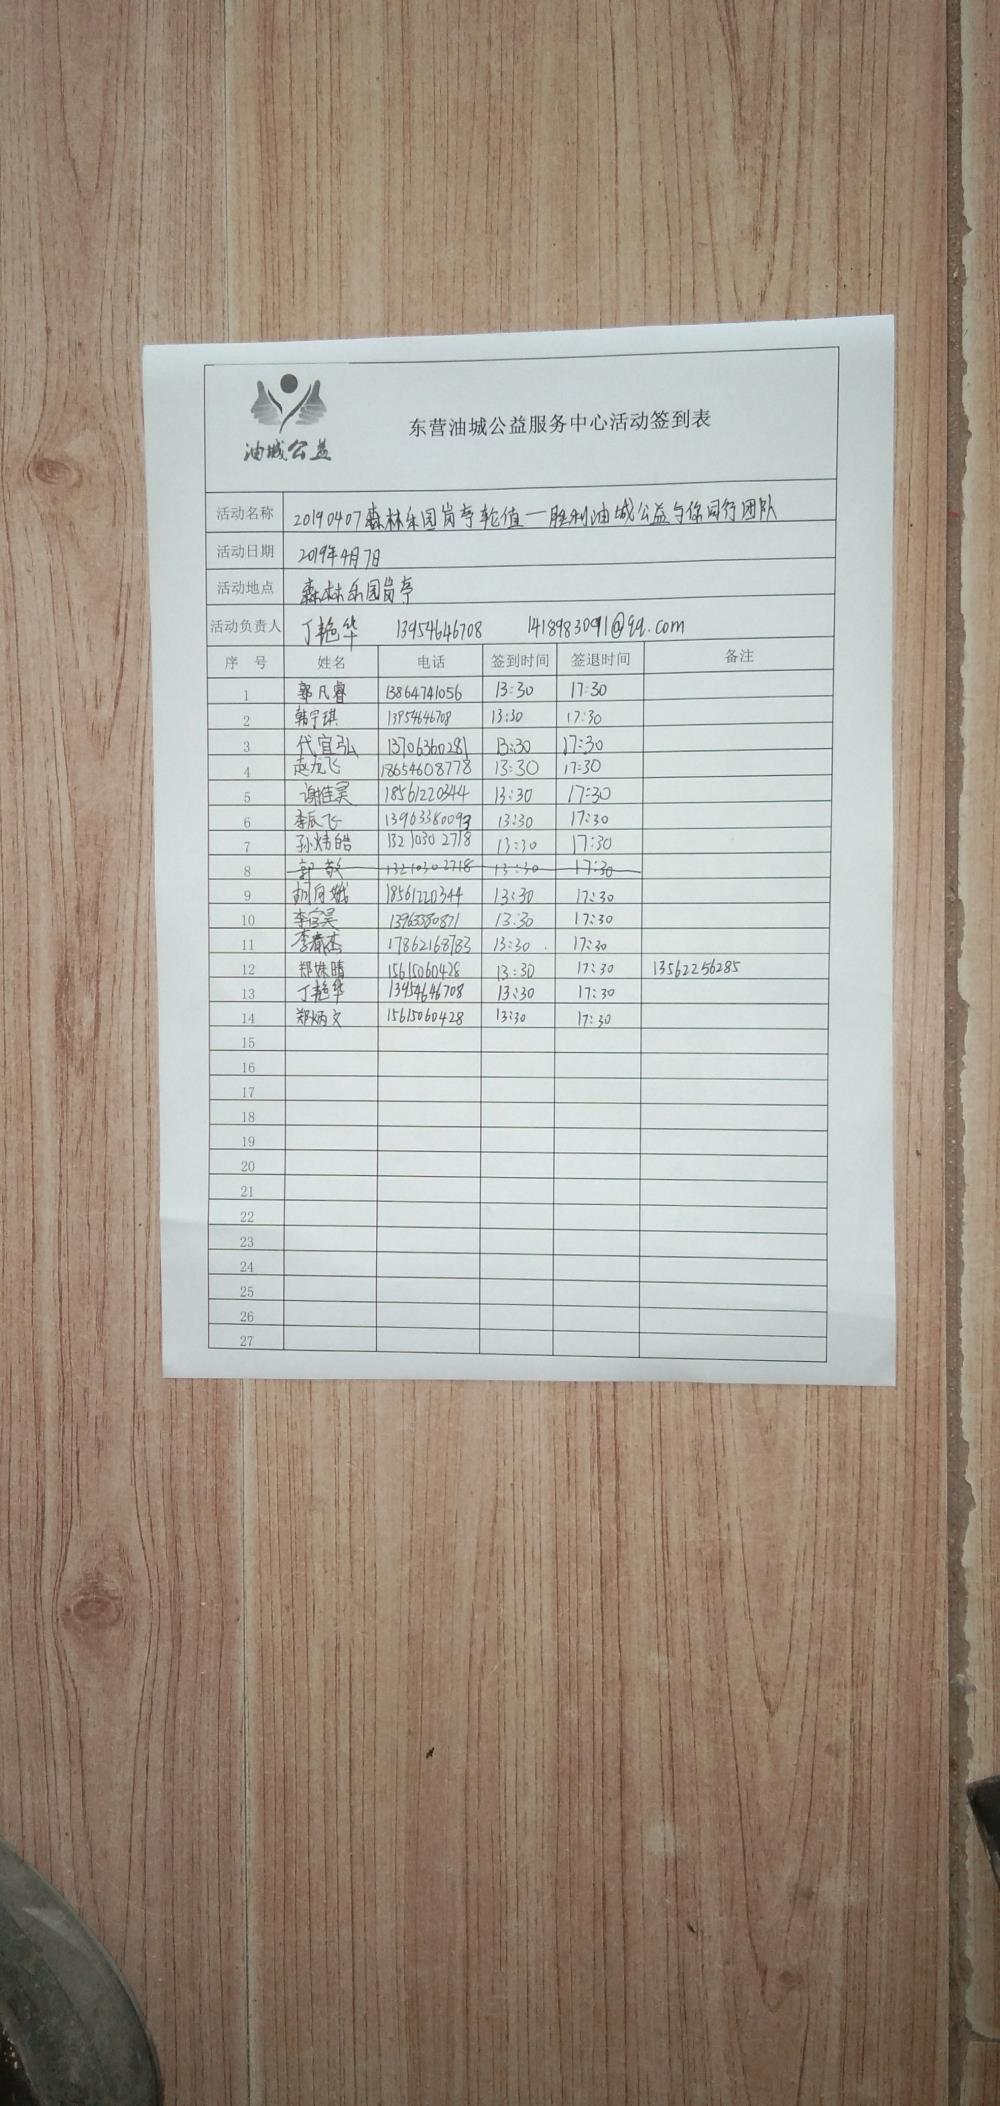 油城公益
东营油城公益服务中心活动签到表
活动名称 20190407森林乐园岗亭轮值—胜利油城公益与你同行团队
活动日期 2019年4月7日
活动地点 森林乐园岗亭
活动负责人 丁艳华 13954646708 1418983091@qq.com
序号 姓名 电话 签到时间 签退时间 备注
1 郭凡睿 13864741056 13:30 17:30
2 韩宇琪 13954646708 13:30 17:30
3 代宜弘 13706360281 13:30 17:30
4 赵龙飞 18654608778 13:30 17:30
5 谢佳昊 18561220344 13:30 17:30
6 李辰飞 13963380093 13:30 17:30
7 孙炜皓 13210302718 13:30 17:30
8 郭敬 13210302718 13:30 17:30
9 胡向娥 18561220344 13:30 17:30
10 李宜昊 13963380871 13:30 17:30
11 李春杰 17862168783 13:30 17:30
12 郑姝晴 15615060428 13:30 17:30 13562256285
13 丁艳华 13954646708 13:30 17:30
14 郑炳文 15615060428 13:30 17:30
15
16
17
18
19
20
21
22
23
24
25
26
27